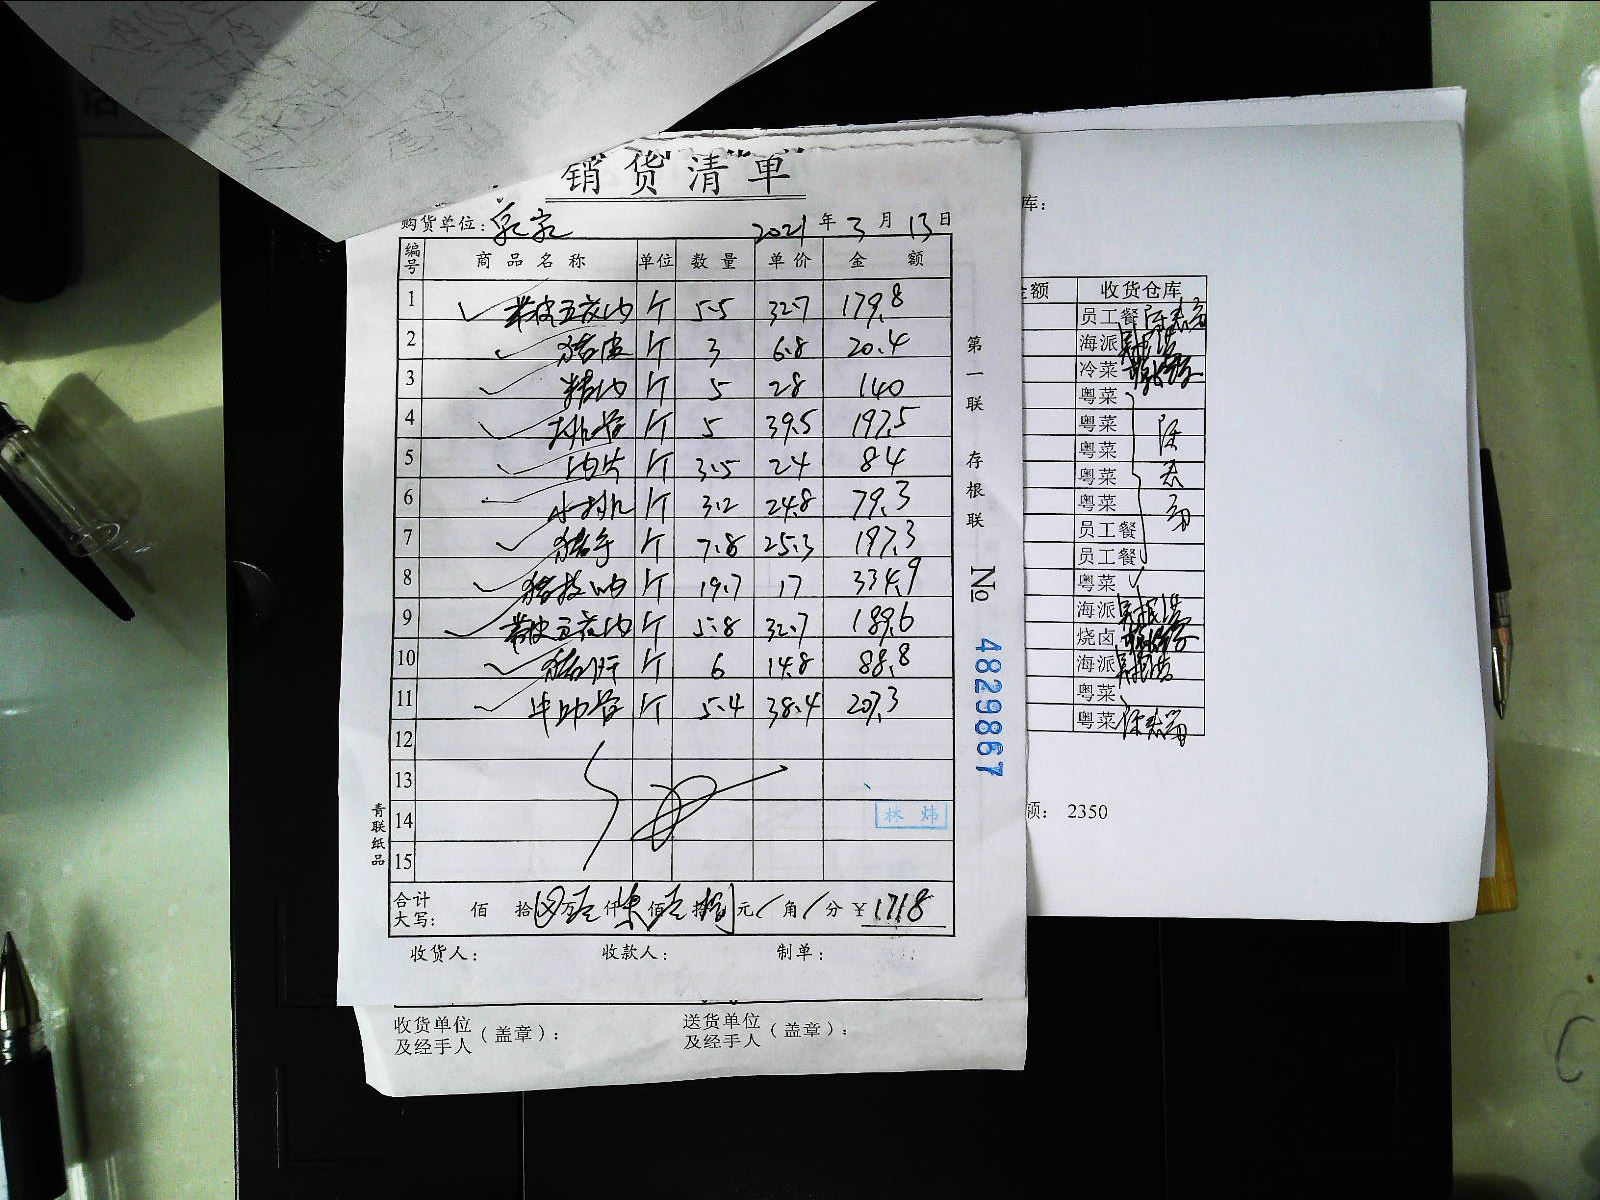 销货清单
购货单位: 2021年3月13日
编号 商品名称 单位 数量 单价 金额
1 带皮五花肉 斤 5.5 32.7 179.8
2 猪皮 斤 3 6.8 20.4
3 精肉 斤 5 28 140
4 排骨 斤 5 39.5 197.5
5 肉片 斤 3.5 24 84
6 小排 斤 3.2 24.8 79.3
7 猪手 斤 7.8 25.3 197.3
8 斤 19.7 17 334.9
9 带皮五花肉 斤 5.8 32.7 189.6
10 猪肝 斤 6 14.8 88.8
11 牛肋骨 斤 5.4 38.4 207.3
12
13
14
15
林炜
合计大写: 佰 拾 万 仟 佰 拾 元 角 分 ¥ 1718
收货人: 收款人: 制单:
第一联 存根联
No 4829867
青联纸品
收货单位及经手人(盖章): 送货单位及经手人(盖章):
库:
金额 收货仓库
员工餐
海派
冷菜
粤菜
粤菜
粤菜
粤菜
粤菜
员工餐
员工餐
粤菜
海派
烧卤
海派
粤菜
粤菜
额: 2350